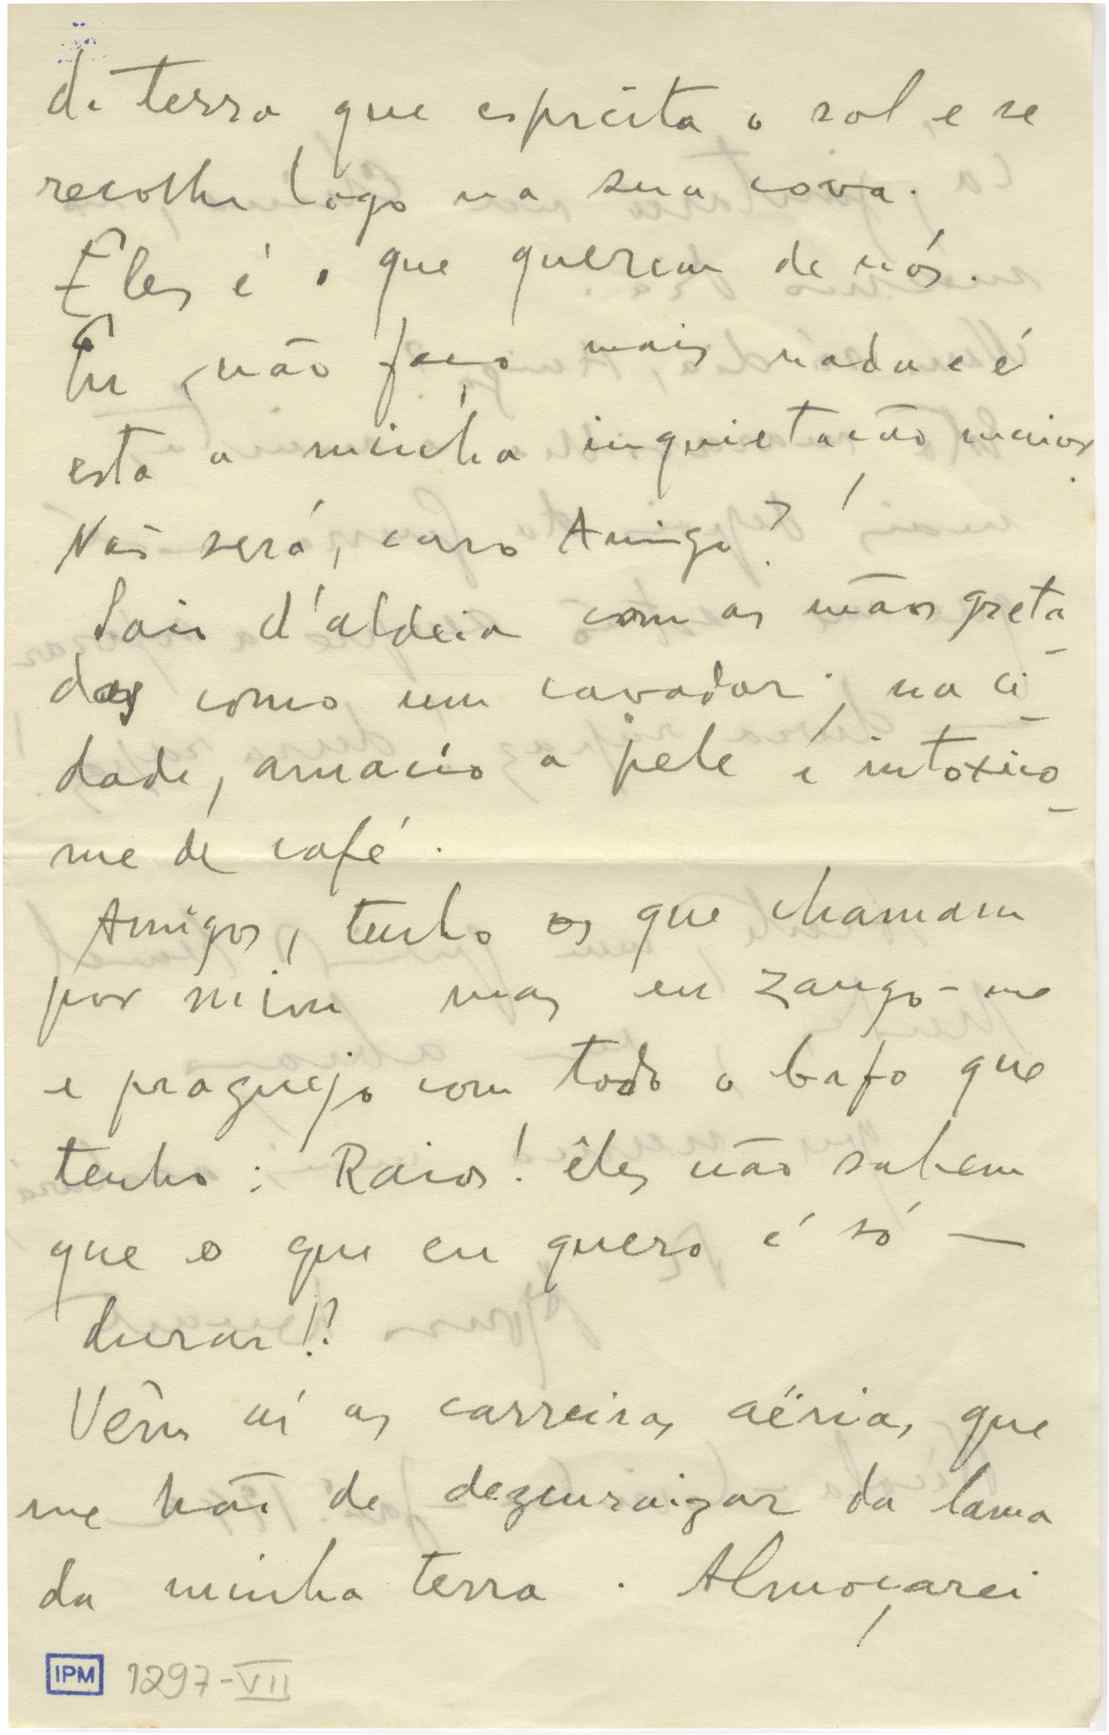 de terra que espreita o sol e se
recolhe logo na sua cova.
Eles é o que querem de nós.
Eu não faço mais nada e é
esta a minha inquietação maior.
Não será, caro Amigo?
Saio d'aldeia com as mãos greta-
das como um cavador; na ci-
dade, amacío a pele e intoxico-
me de café.
Amigos, tenho os que chamam
por mim mas eu zango-me
e praguejo com todo o bafo que
tenho: Raios! êles não sabem
que o que eu quero é só —
durar!!?
Vêm aí as carreiras aërias que
me hão de dezenraizar da lama
da minha terra. Almoçarei
IPM 1297-VII